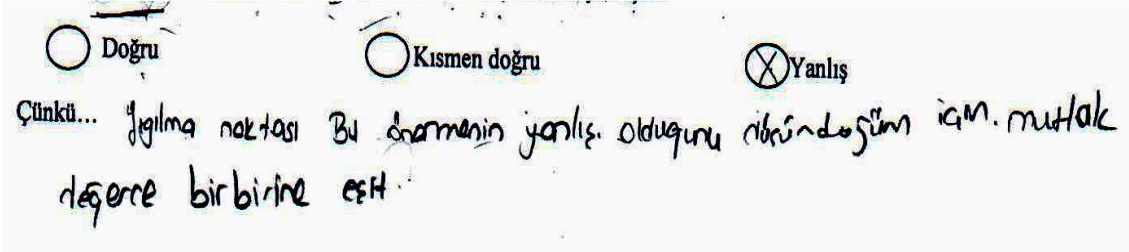 Doğru Kısmen doğru Yanlış
Çünkü... Yığılma noktası Bu önermenin yanlış. olduğunu düşündüğüm için. mutlak
değerce birbirine eşit.